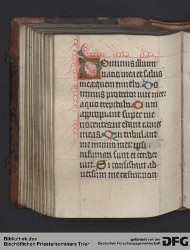 Dominus illumi
natio mea et salus
mea quem timebo Do
minus protector vite mee
a quo trepidabo Dum
appropiant super me
nocentes ut edant carnes
meas Qui tribulant
me inimici mei ipsi
infirmati sunt et cecider
unt Si consistant ad
Bibliothek des
Bischöflichen Priesterseminars Trier
gefördert von der
DFG
Deutschen Forschungsgemeinschaft